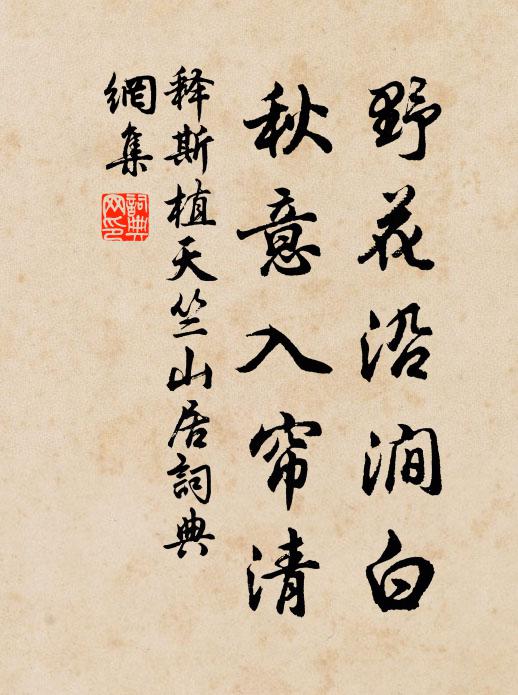 野花沿澗白
秋意入帘清
释斯植天竺山居詞典
網集
詞典
网印